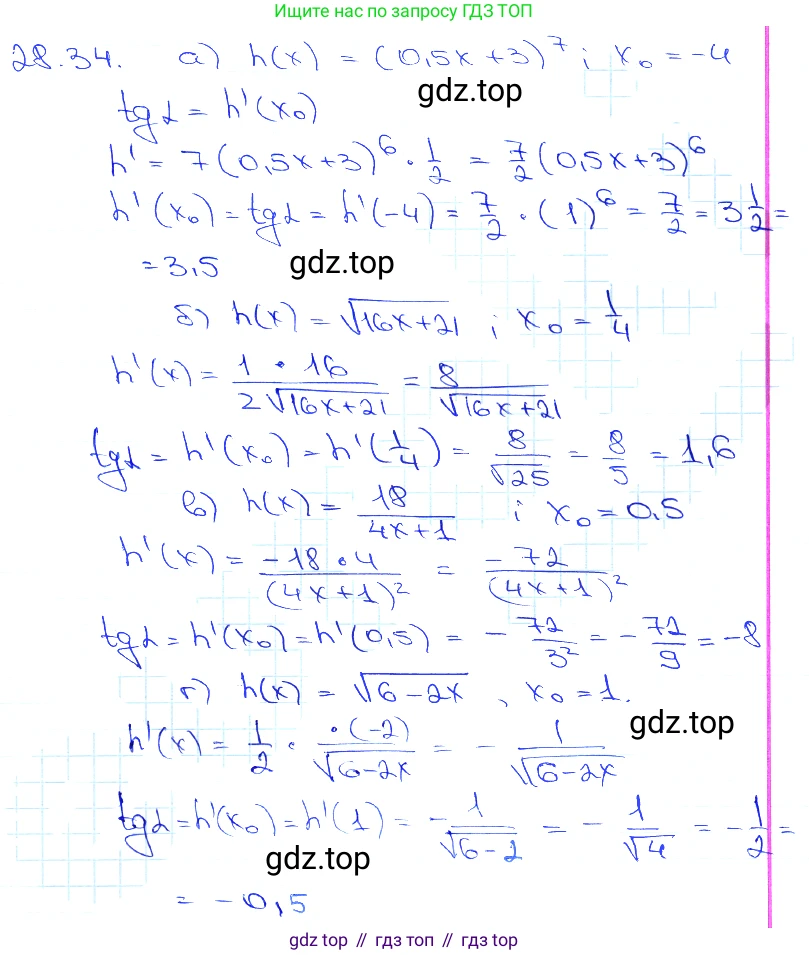 Ищите нас по запросу ГДЗ ТОП
28.34. а) h(x) = (0,5x+3)^7 ; x₀ = -4
gdz.top
tg α = h'(x₀)
h' = 7(0,5x+3)^6 · 1/2 = 7/2 (0,5x+3)^6
h'(x₀) = tg α = h'(-4) = 7/2 · (1)^6 = 7/2 = 3 1/2 =
= 3,5
gdz.top
б) h(x) = √(16x+21) ; x₀ = 1/4
h'(x) = 1 · 16 / 2√(16x+21) = 8 / √(16x+21)
tg α = h'(x₀) = h'(1/4) = 8/√25 = 8/5 = 1,6
в) h(x) = 18/(4x+1) ; x₀ = 0,5
h'(x) = -18 · 4 / (4x+1)² = -72 / (4x+1)²
tg α = h'(x₀) = h'(0,5) = - 72/3² = - 72/9 = -8
г) h(x) = √(6-2x) , x₀ = 1.
gdz.top
h'(x) = 1/2 · ·(-2)/√(6-2x) = - 1/√(6-2x)
tg α = h'(x₀) = h'(1) = - 1/√(6-2) = - 1/√4 = - 1/2 =
gdz.top
= -0,5
gdz top // гдз топ // gdz top